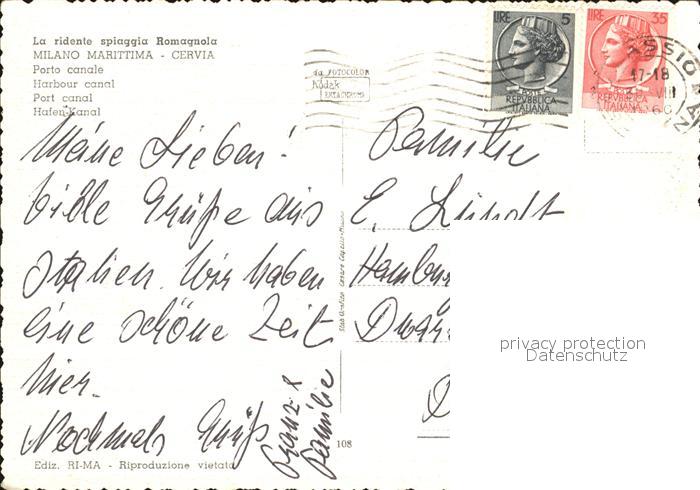 La ridente spiaggia Romagnola
MILANO MARITTIMA - CERVIA
Porto canale
Harbour canal
Port canal
Hafen-Kanal
da FOTOCOLOR
Kodak
EKTACHROME
LIRE 5
REPVBBLICA
ITALIANA
LIRE 35
REPVBBLICA
ITALIANA
17-18
VIII
Meine Lieben!
viele Grüße aus
Italien. Wir haben
eine schöne Zeit
hier.
Nochmals Grüße
Franz &
Familie
Familie
E.
Hambur
privacy protection
Datenschutz
108
Ediz. RI-MA - Riproduzione vietata